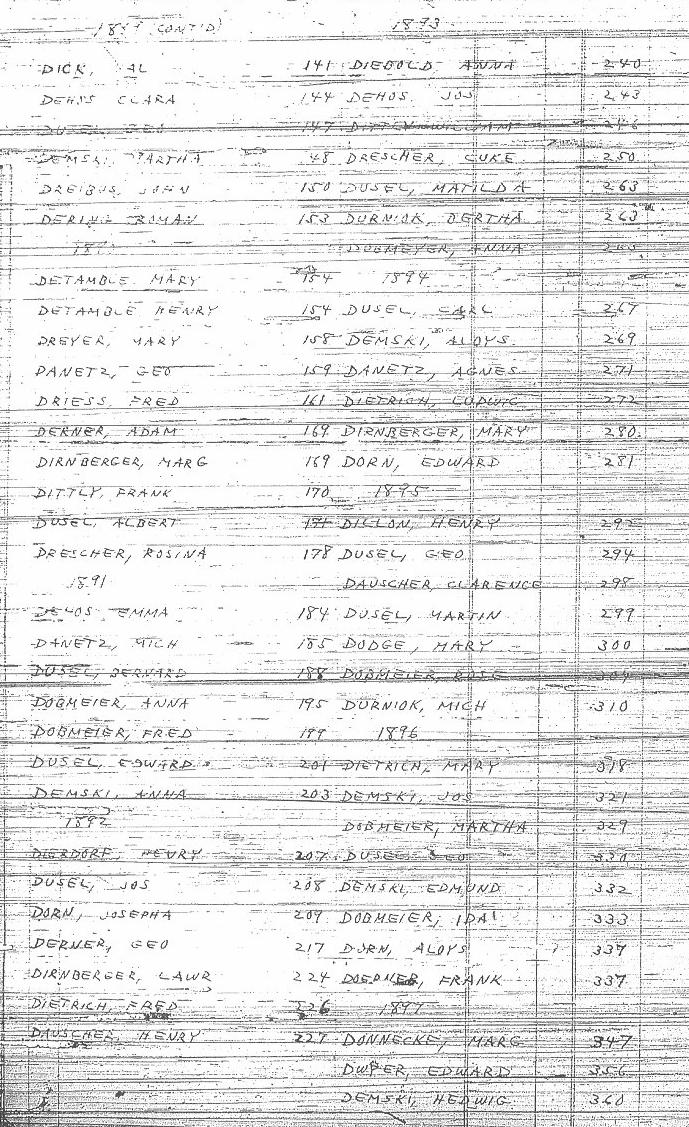 (CONT'D)
DICK, AL 141
CLARA 144
147
DEMSKI, MARTHA 48
DREIBUS, JOHN 150
DERING ROMAN 153
DETAMBLE MARY 154
DETAMBLE HENRY 154
DREYER, MARY 158
DANETZ, GEO 159
DRIESS, FRED 161
DERNER, ADAM 169
DIRNBERGER, MARG 169
DITTLY, FRANK 170
DUSEL, ALBERT
DRESCHER, ROSINA 178
1891
EMMA 184
DANETZ, MICH 185
DUSEL, BERNARD 188
DOBMEIER, ANNA 195
DOBMEIER, FRED 199
DUSEL, EDWARD 201
DEMSKI, ANNA 203
1892
DIERDORF, HENRY 207
DUSEL, JOS 208
DORN, JOSEPHA 209
DERNER, GEO 217
DIRNBERGER, LAWR 224
DIETRICH, FRED 226
DAUSCHER, HENRY 227
1893
DIEBOLD ANNA 240
DEHOS JOS 243
WILLIAM 246
DRESCHER, LUKE 250
DUSEL, MATILDA 263
DURNIOK, BERTHA 263
DOBMEYER, ANNA 265
1894
DUSEL, CARL 267
DEMSKI, ALOYS 269
DANETZ, AGNES 271
DIETRICH, LUDWIG 272
DIRNBERGER, MARY 280
DORN, EDWARD 281
1895
DILLON, HENRY 292
DUSEL, GEO 294
DAUSCHER, CLARENCE 298
DUSEL, MARTIN 299
DODGE, MARY 300
DOBMEIER, ROSE
DURNIOK, MICH 310
1896
DIETRICH, MARY 318
DEMSKI, JOS 321
DOBMEIER, MARTHA 329
DUSEL GEO 330
DEMSKI, EDMUND 332
DOBMEIER, IDA 333
DORN, ALOYS 337
FRANK 337
1897
DONNECKE, MARG 347
EDWARD 356
DEMSKI, HEDWIG 360